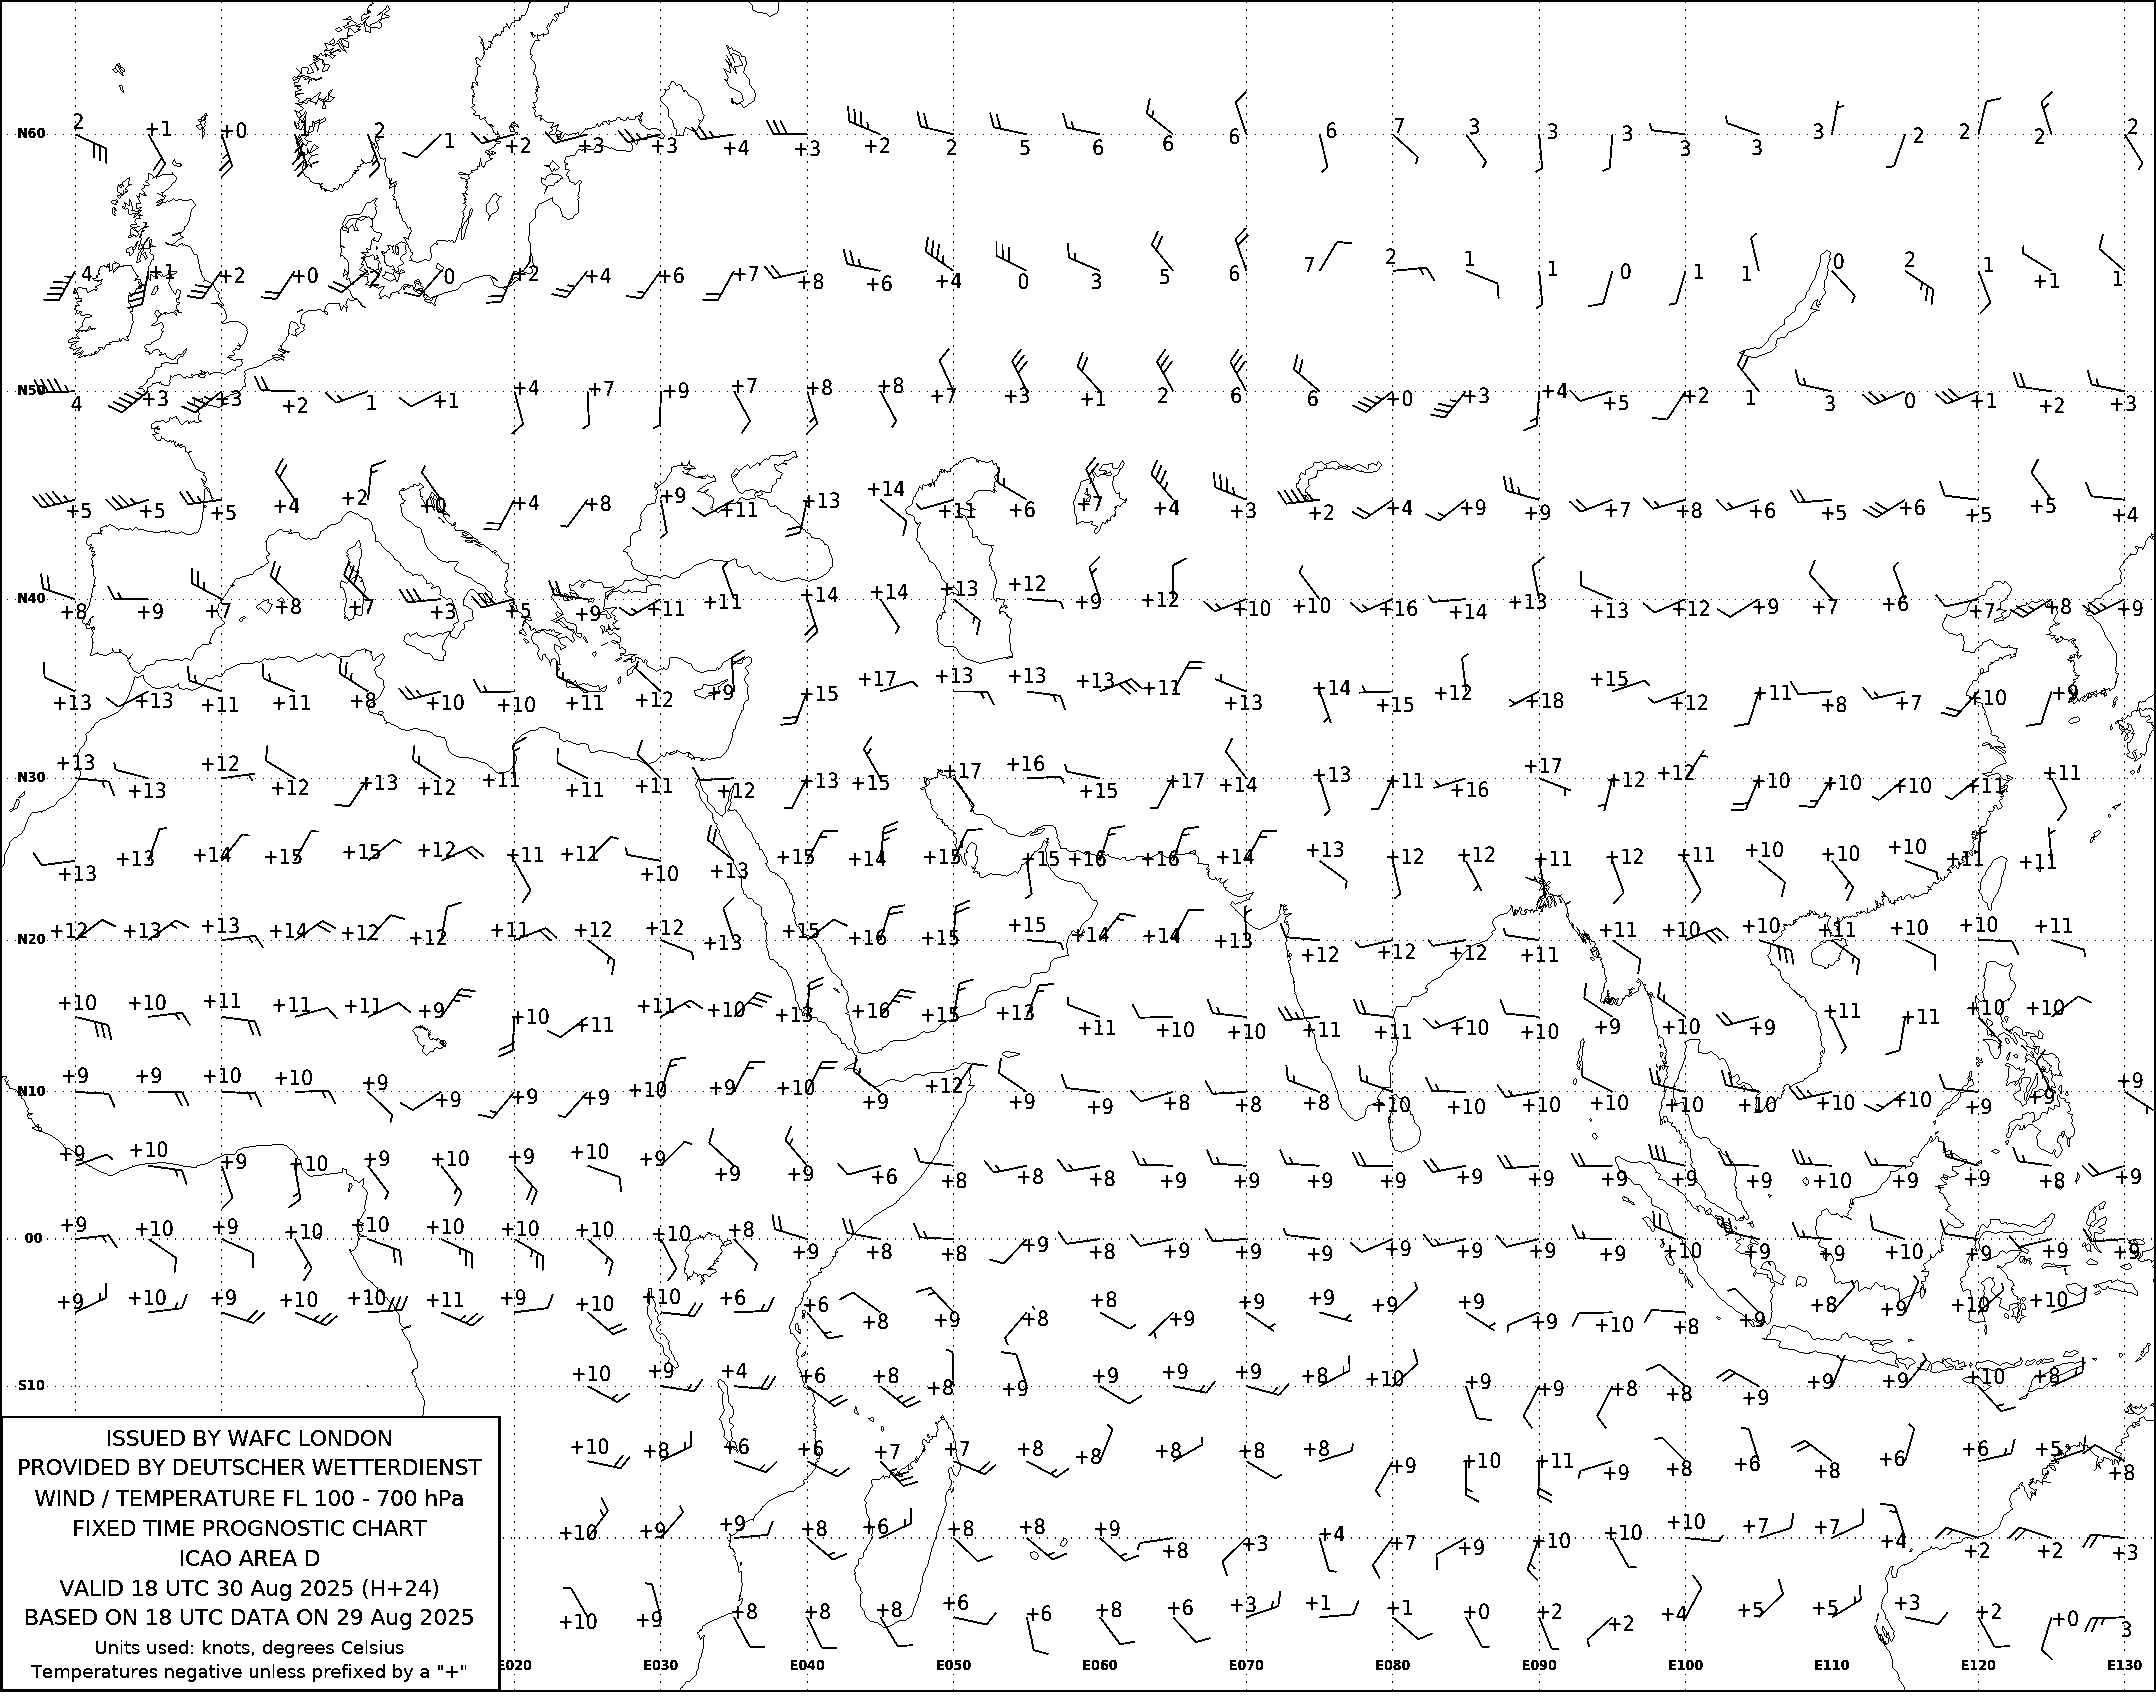 N60 2 +1 +0 1 2 1 +2 +3 +3 +4 +3 +2 2 5 6 6 6 6 7 3 3 3 3 3 3 2 2 2 2
4 +1 +2 +0 2 0 +2 +4 +6 +7 +8 +6 +4 0 3 5 6 7 2 1 1 0 1 1 0 2 1 +1 1
N50 4 +3 +3 +2 1 +1 +4 +7 +9 +7 +8 +8 +7 +3 +1 2 6 6 +0 +3 +4 +5 +2 1 3 0 +1 +2 +3
+5 +5 +5 +4 +2 +0 +4 +8 +9 +11 +13 +14 +11 +6 +7 +4 +3 +2 +4 +9 +9 +7 +8 +6 +5 +6 +5 +5 +4
N40 +8 +9 +7 +8 +7 +3 +5 +9 +11 +11 +14 +14 +13 +12 +9 +12 +10 +10 +16 +14 +13 +13 +12 +9 +7 +6 +7 +8 +9
+13 +13 +11 +11 +8 +10 +10 +11 +12 +9 +15 +17 +13 +13 +13 +11 +13 +14 +15 +12 +18 +15 +12 +11 +8 +7 +10 +9
N30 +13 +13 +12 +12 +13 +12 +11 +11 +11 +12 +13 +15 +17 +16 +15 +17 +14 +13 +11 +16 +17 +12 +12 +10 +10 +10 +11 +11
+13 +13 +14 +15 +15 +12 +11 +12 +10 +13 +15 +14 +15 +15 +16 +16 +14 +13 +12 +12 +11 +12 +11 +10 +10 +10 +11 +11
N20 +12 +13 +13 +14 +12 +12 +11 +12 +12 +13 +15 +16 +15 +15 +14 +14 +13 +12 +12 +12 +11 +11 +10 +10 +11 +10 +10 +11
+10 +10 +11 +11 +11 +9 +10 +11 +11 +10 +13 +16 +15 +13 +11 +10 +10 +11 +11 +10 +10 +9 +10 +9 +11 +11 +10 +10
N10 +9 +9 +10 +10 +9 +9 +9 +9 +10 +9 +10 +9 +12 +9 +9 +8 +8 +8 +10 +10 +10 +10 +10 +10 +10 +10 +9 +9 +9
+9 +10 +9 +10 +9 +10 +9 +10 +9 +9 +9 +6 +8 +8 +8 +9 +9 +9 +9 +9 +9 +9 +9 +9 +10 +9 +9 +8 +9
00 +9 +10 +9 +10 +10 +10 +10 +10 +10 +8 +9 +8 +8 +9 +8 +9 +9 +9 +9 +9 +9 +9 +10 +9 +9 +10 +9 +9 +9
+9 +10 +9 +10 +10 +11 +9 +10 +10 +6 +6 +8 +9 +8 +8 +9 +9 +9 +9 +9 +9 +10 +8 +9 +8 +9 +10 +10
S10 +10 +9 +4 +6 +8 +8 +9 +9 +9 +9 +8 +10 +9 +9 +8 +8 +9 +9 +9 +10 +8
+10 +8 +6 +6 +7 +7 +8 +8 +8 +8 +8 +9 +10 +11 +9 +8 +6 +8 +6 +6 +5 +8
+10 +9 +9 +8 +6 +8 +8 +9 +8 +3 +4 +7 +9 +10 +10 +10 +7 +7 +4 +2 +2 +3
+10 +9 +8 +8 +8 +6 +6 +8 +6 +3 +1 +1 +0 +2 +2 +4 +5 +5 +3 +2 +0 3
E020 E030 E040 E050 E060 E070 E080 E090 E100 E110 E120 E130
ISSUED BY WAFC LONDON
PROVIDED BY DEUTSCHER WETTERDIENST
WIND / TEMPERATURE FL 100 - 700 hPa
FIXED TIME PROGNOSTIC CHART
ICAO AREA D
VALID 18 UTC 30 Aug 2025 (H+24)
BASED ON 18 UTC DATA ON 29 Aug 2025
Units used: knots, degrees Celsius
Temperatures negative unless prefixed by a "+"